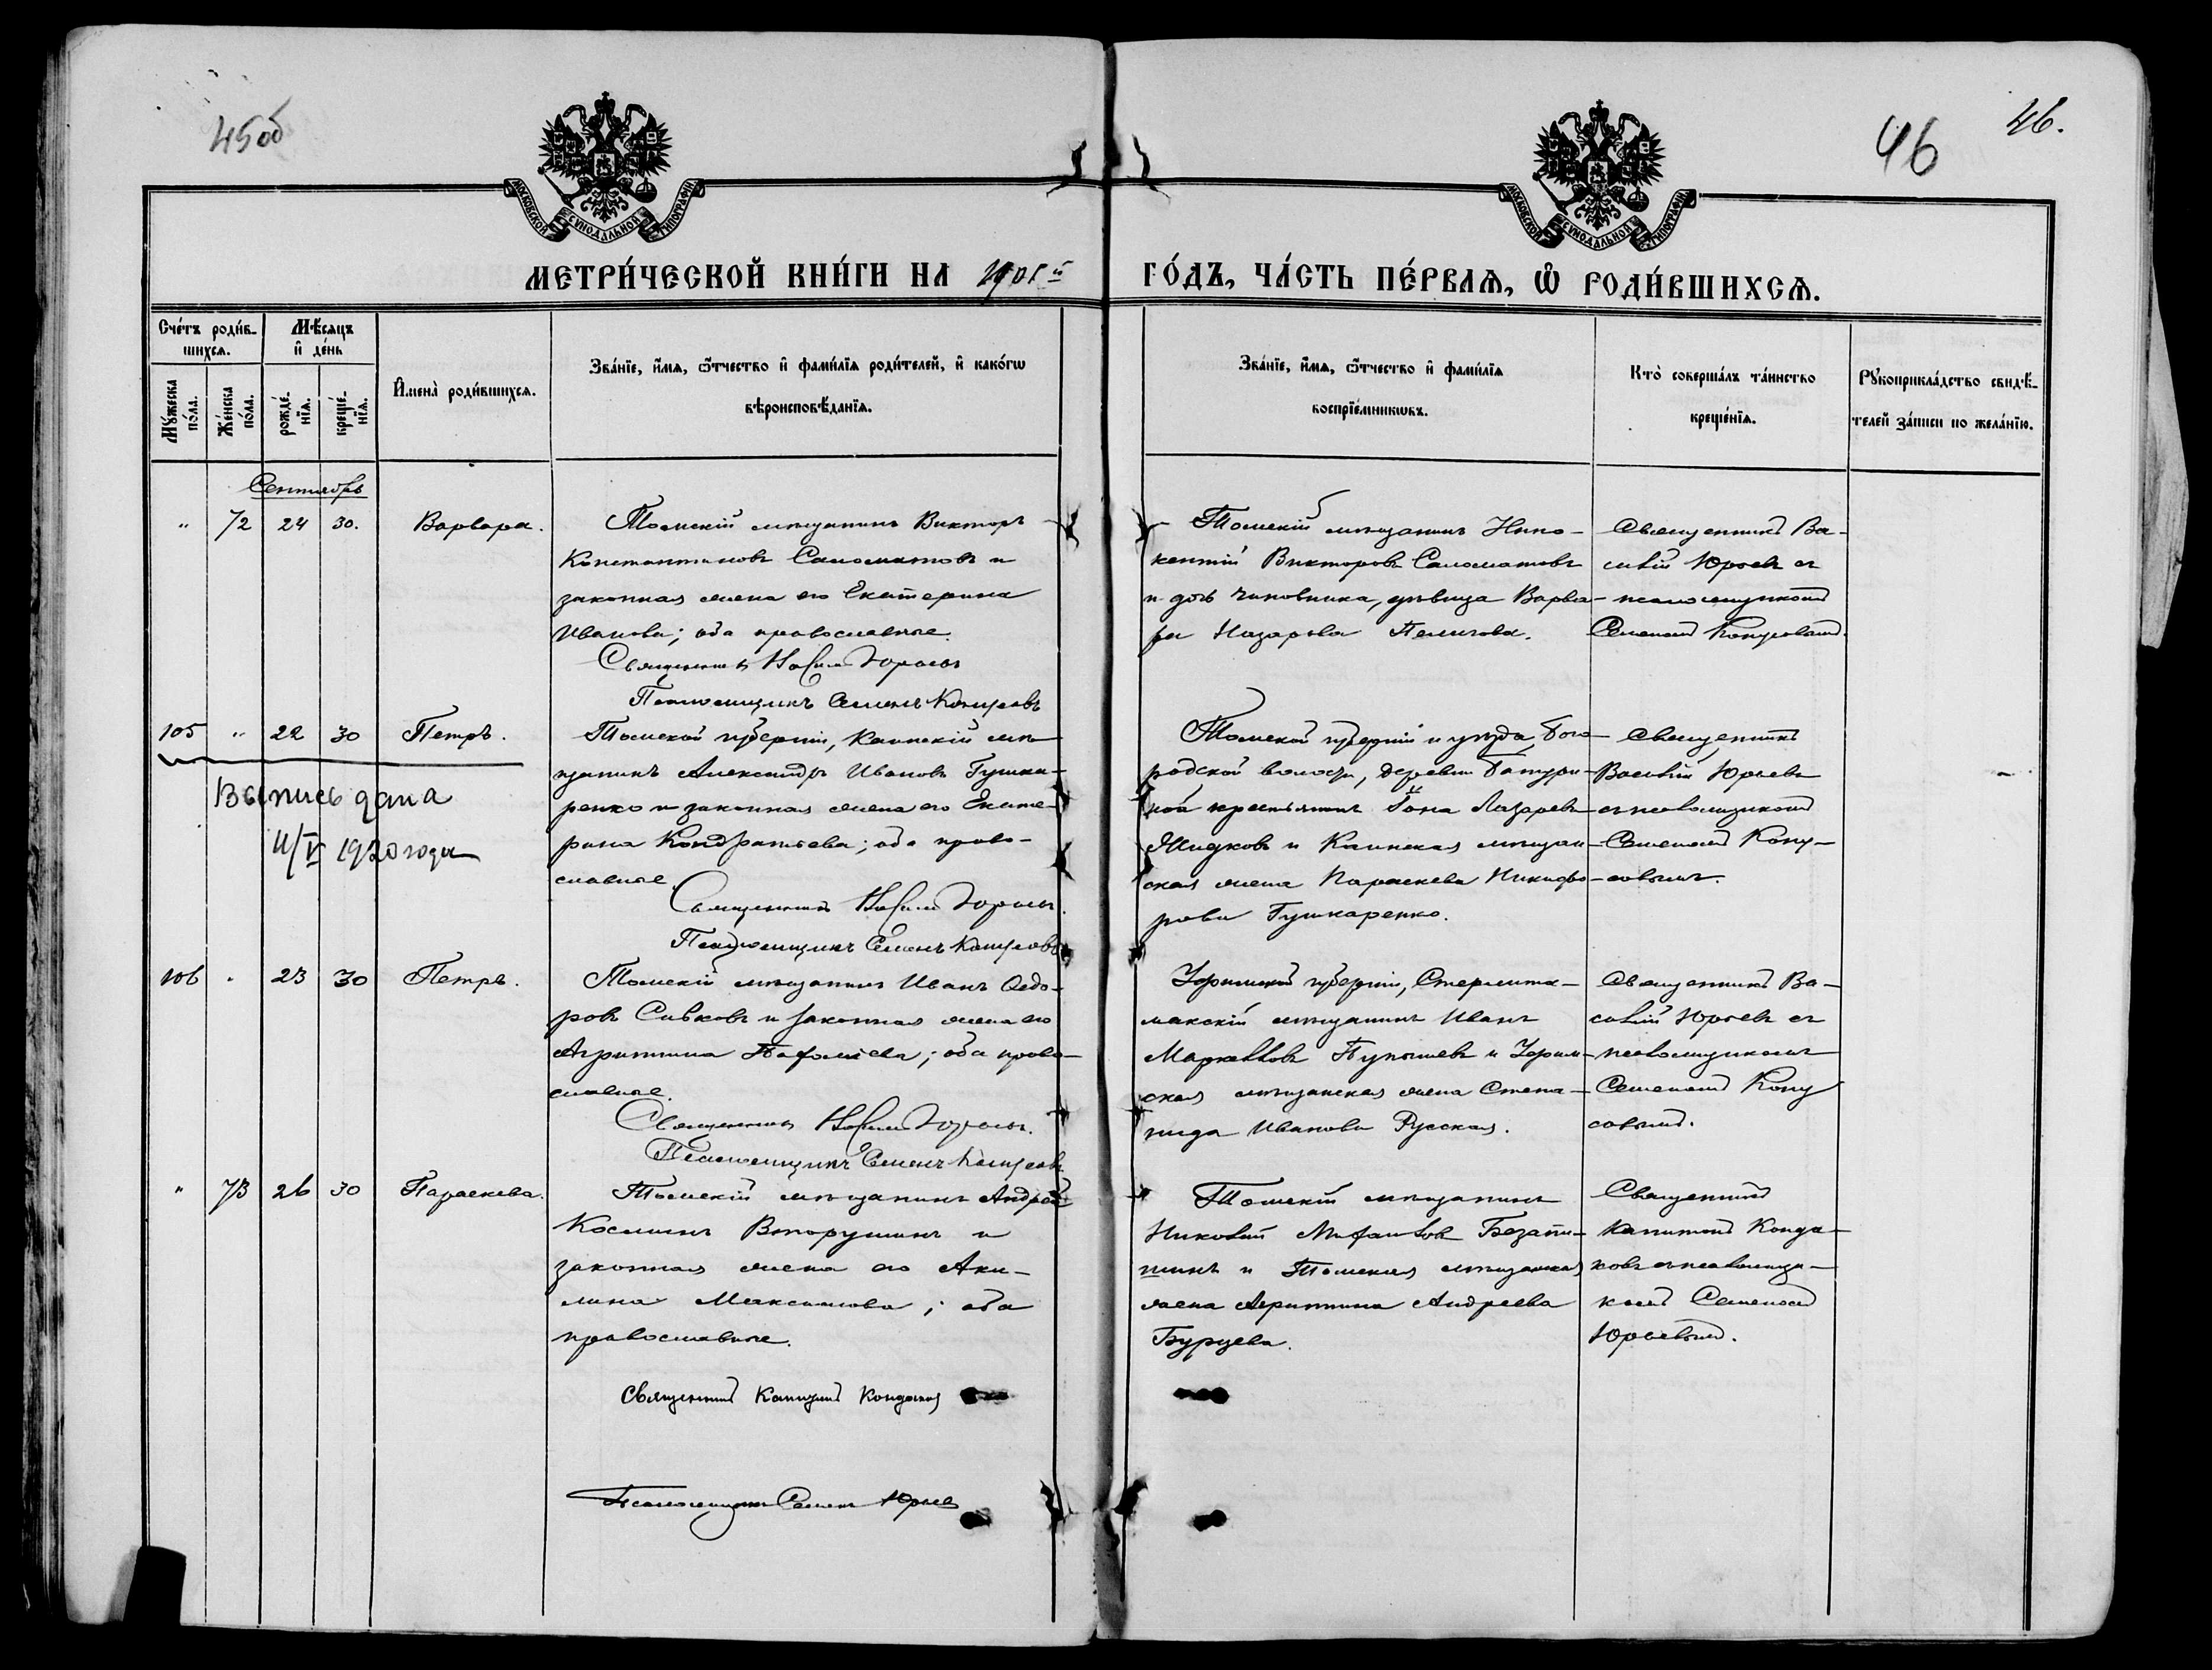 45об
46
46.
МОСКОВСКОЙ СУНОДАЛЬНОЙ ТИПОГРАФІИ
МОСКОВСКОЙ СУНОДАЛЬНОЙ ТИПОГРАФІИ
МЕТРИ́ЧЕСКОЙ КНИ́ГИ НА 1901й ГО́ДЪ, ЧА́СТЬ ПЕ́РВАѦ, Ѽ РОДИ́ВШИХСѦ.
Сче́тъ роди́в-
шихсѧ.
Мѣ́сѧцъ
и҆ де́нь
Мꙋ́жеска по́ла.
Же́нска по́ла.
рожде́-
нїѧ.
креще́-
нїѧ.
И҆мена̀ роди́вшихсѧ.
Зва́нїе, и҆́мѧ, ѻ҆́тчество и҆ фами́лїѧ роди́телей, и҆ како́гѡ
вѣроисповѣ́данїѧ.
Зва́нїе, и҆́мѧ, ѻ҆́тчество и҆ фами́лїѧ
воспрїе́мникѡвъ.
Кто̀ соверша́лъ та́инство
креще́нїѧ.
Рꙋкоприкла́дство свидѣ́-
телей за́писи по жела́нїю.
Сентябрь
" 72 24 30. Варвара.
Томскій мѣщанинъ Викторъ
Константиновъ Саломатовъ и
законная жена его Екатерина
Иванова; оба православные.
Священникъ Юрьевъ
Псаломщикъ Семенъ Концевъ
Томскій мѣщанинъ Инно-
кентій Викторовъ Саломатовъ
и дочь чиновника, дѣвица Варва-
ра Назарова
Священникъ Ва-
силій Юрьевъ съ
псаломщикомъ
Семеномъ
105 " 22 30 Петръ.
Выпись дана
11/V 1920 года
Томской губерніи, Каинскій мѣ-
щанинъ Александръ Ивановъ Гушка-
ренко и законная жена его Екате-
рина Кондратьева; оба право-
славные.
Священникъ Юрьевъ.
Псаломщикъ Семенъ
Томской губерніи и уѣзда, Бого-
родской волости, деревни Батури-
ной крестьянинъ Іона Лазаревъ
Жидковъ и Каинская мѣщан-
ская жена Параскева Никифо-
рова Гушкаренко.
Священникъ
Василій Юрьевъ
съ псаломщикомъ
Семеномъ
106 " 23 30 Петръ.
Томскій мѣщанинъ Иванъ Ѳедо-
ровъ Сивковъ и законная жена его
Агриппина; оба право-
славные.
Священникъ Юрьевъ.
Псаломщикъ Семенъ
Уфимской губерніи, Стерлита-
макскій мѣщанинъ Иванъ
Маркелловъ Пупышевъ и Уфим-
ская мѣщанская жена Степа-
нида Иванова Русская.
Священникъ Ва-
силій Юрьевъ съ
псаломщикомъ
Семеномъ
" 73 26 30 Параскева.
Томскій мѣщанинъ Андрей
Косминъ Вторушинъ и
законная жена его Аки-
лина Максимова; оба
православные.
Священникъ Капитонъ Кондаковъ
Псаломщикъ Семенъ Юрьевъ
Томскій мѣщанинъ
Николай Михаиловъ
и Томская мѣщанская
жена Агриппина Андреева
Бурцева.
Священникъ
Капитонъ Конда-
ковъ съ псаломщи-
комъ Семеномъ
Юрьевымъ.